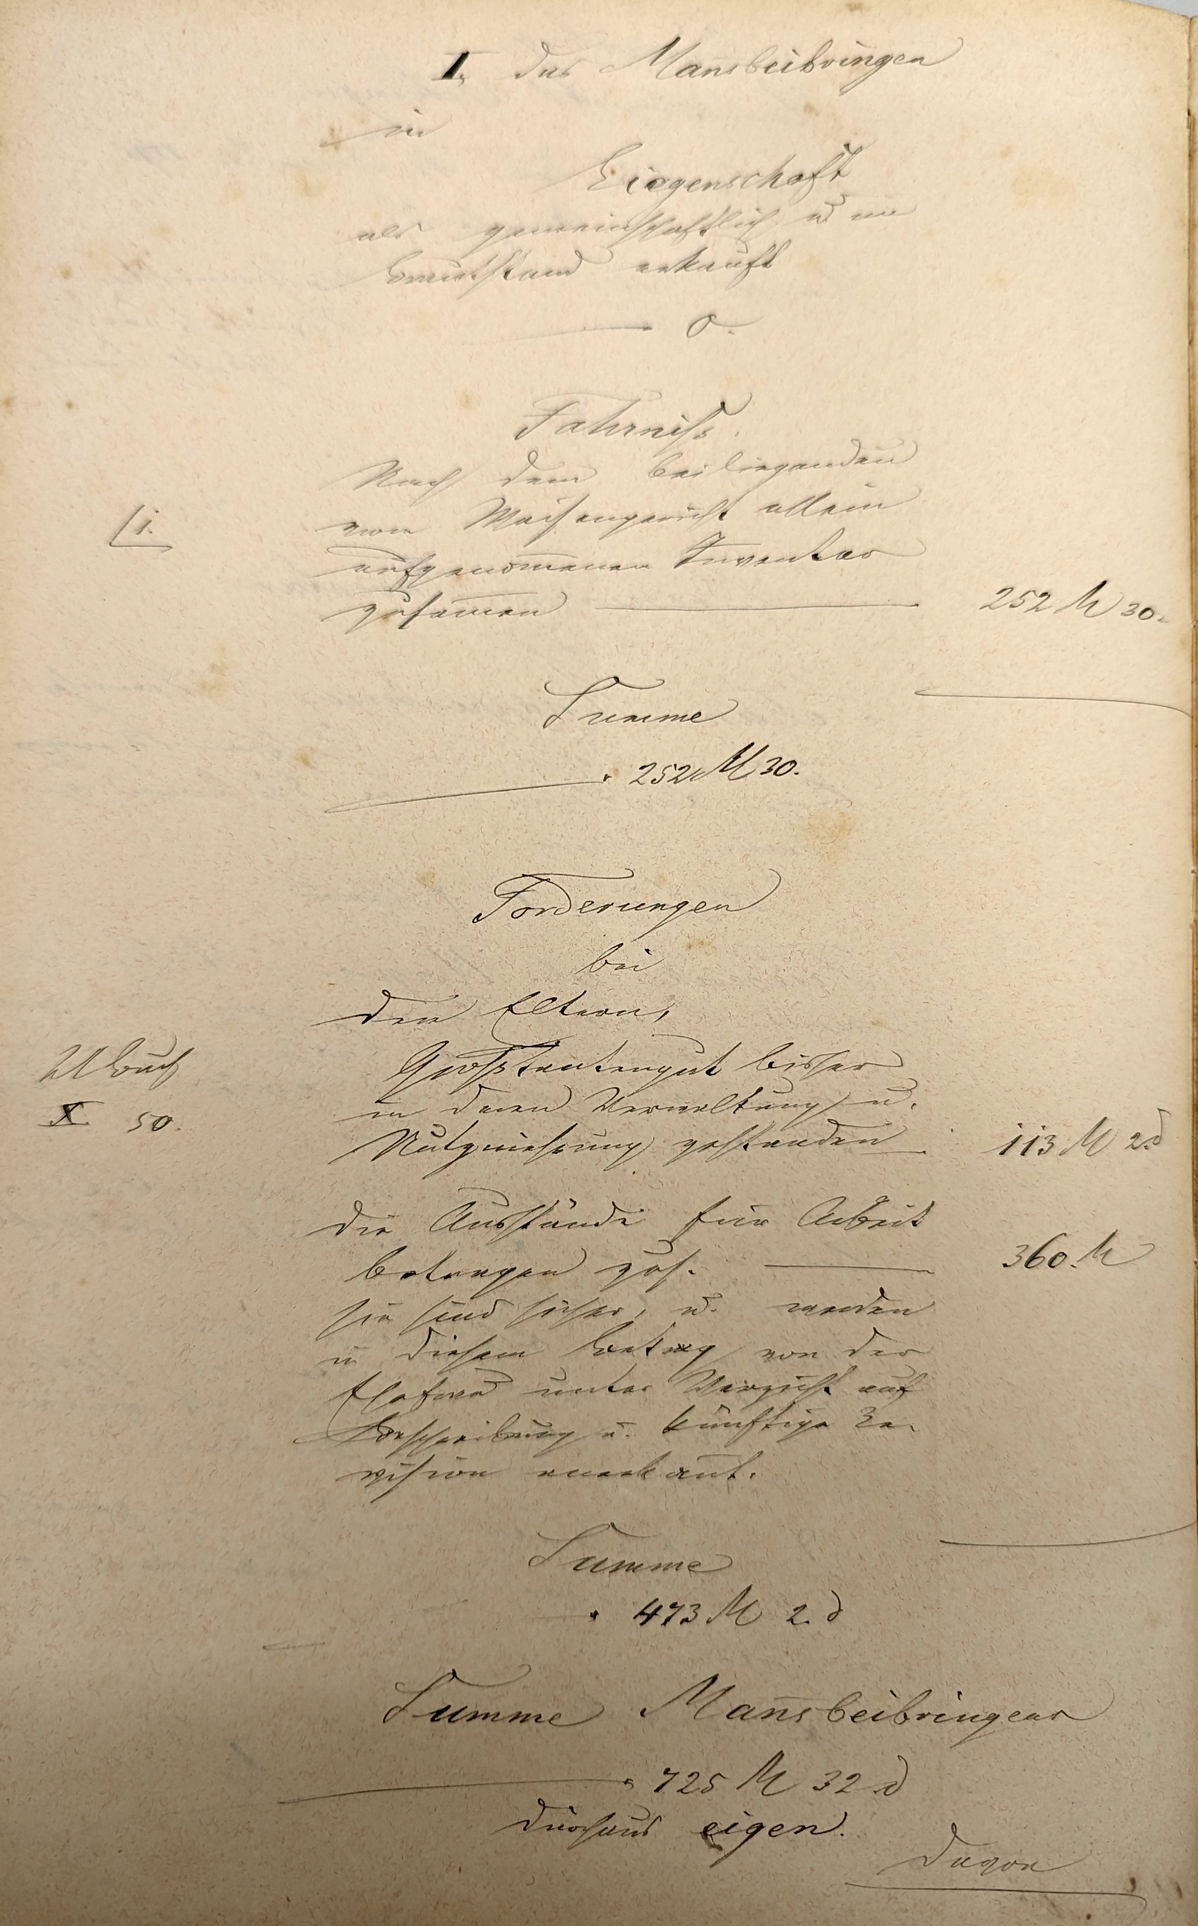 I, das Mannsbeibringen
in
Eigenschaft
als gemeinschaftlich u im
Brautstand erkauft
0.
Fahrniss.
Nach dem beiliegenden
1.
vom Waisengericht allein
aufgenommenen Inventar
zusamen 252 M 30.
Summe
252 M 30.
Forderungen
bei
den Eltern,
Ubuch
Grosstantengut bisher
X 50.
in deren Verwaltung u.
Nutzniesung gestanden 113 M 2 d
die Ausstände für Arbeit
betragen zus. 360. M
sie sind sicher, u. werden
in diesem Betrag von der
Ehefrau unter Verzicht auf
Beschreibung u. künftige Re-
vision anerkant.
Summe
473 M 2. d
Summe Mannsbeibringens
725 M 32 d
durchaus eigen.
Davon